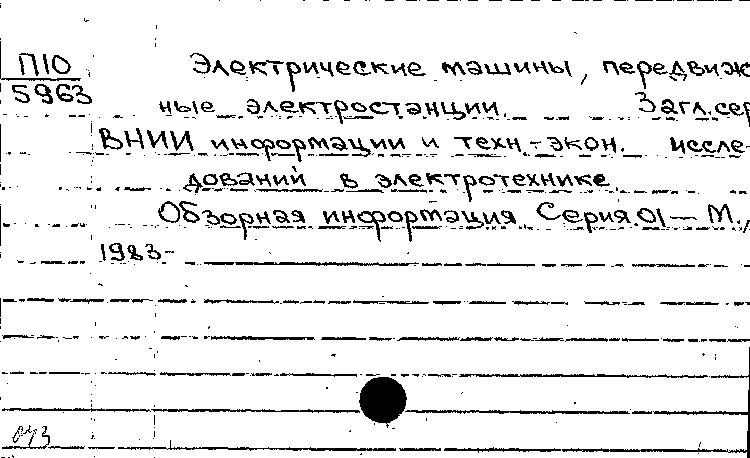 П10 Электрические машины, передвиж
5963 ные электростанции. Загл.сер
ВНИИ информации и техн.-экон. иссле-
дований в электротехнике
Обзорная информация. Серия.01 — М.,
1983-